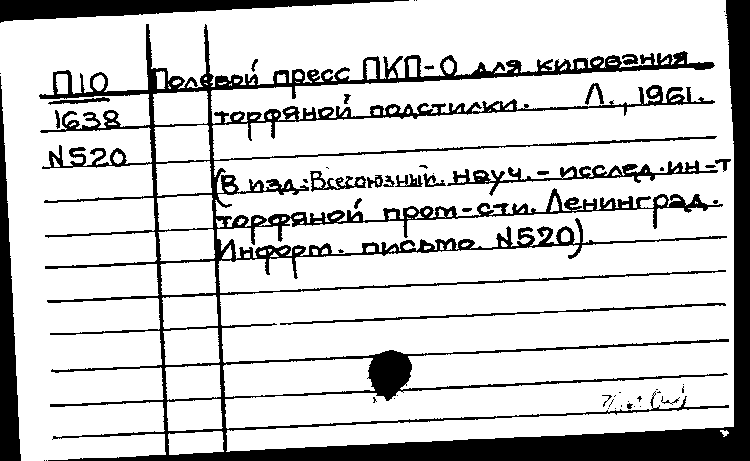 П10 Полевой пресс ПКП-О для кипования
1638 торфяной подстилки. Л., 1961.
N520
(В изд.: Всесоюзный. науч.-исслед.ин-т
торфяной пром-сти. Ленинград.
Информ. письмо. N520).